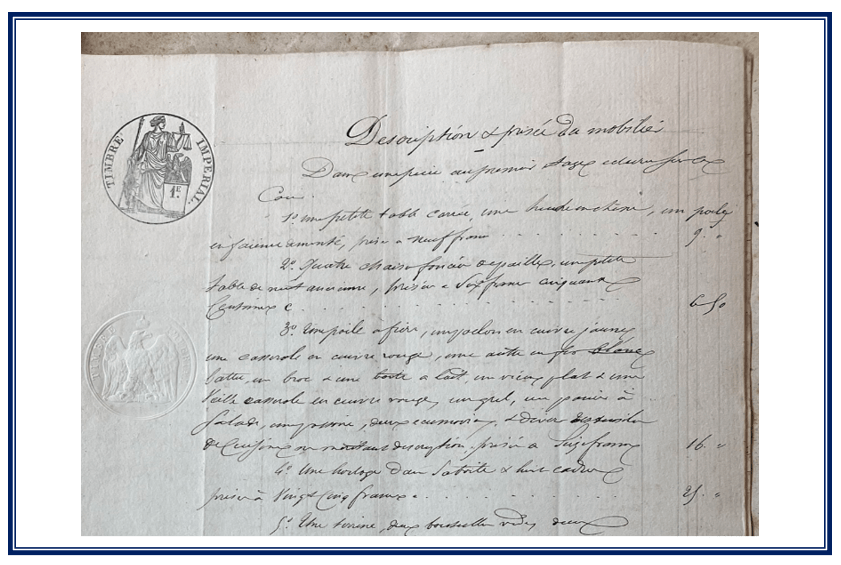 TIMBRE IMPÉRIAL.
1F.
Description & prisée du mobilier
Dans une pièce au premier étage éclairée sur la
Cour
1° une petite table carrée, une huche en chêne, un poêle
en faïence, prisé à neuf francs 9. "
2° Quatre chaises foncées de paille, une petite
table de nuit ancienne, prisés à six francs cinquante
Centimes 6 50
3° Une poêle à frire, un poêlon en cuivre jaune
une casserole en cuivre rouge, une autre en fer
battu, un broc & une boîte à lait, un vieux plat & une
vieille casserole en cuivre rouge, un gril, un panier à
salade, deux & divers
de cuisine ne méritant description prisé à Seize francs 16. "
4° Une horloge dans sa boîte & huit cadres
prisés à Vingt Cinq francs 25. "
5° Une deux bouteilles vides, deux